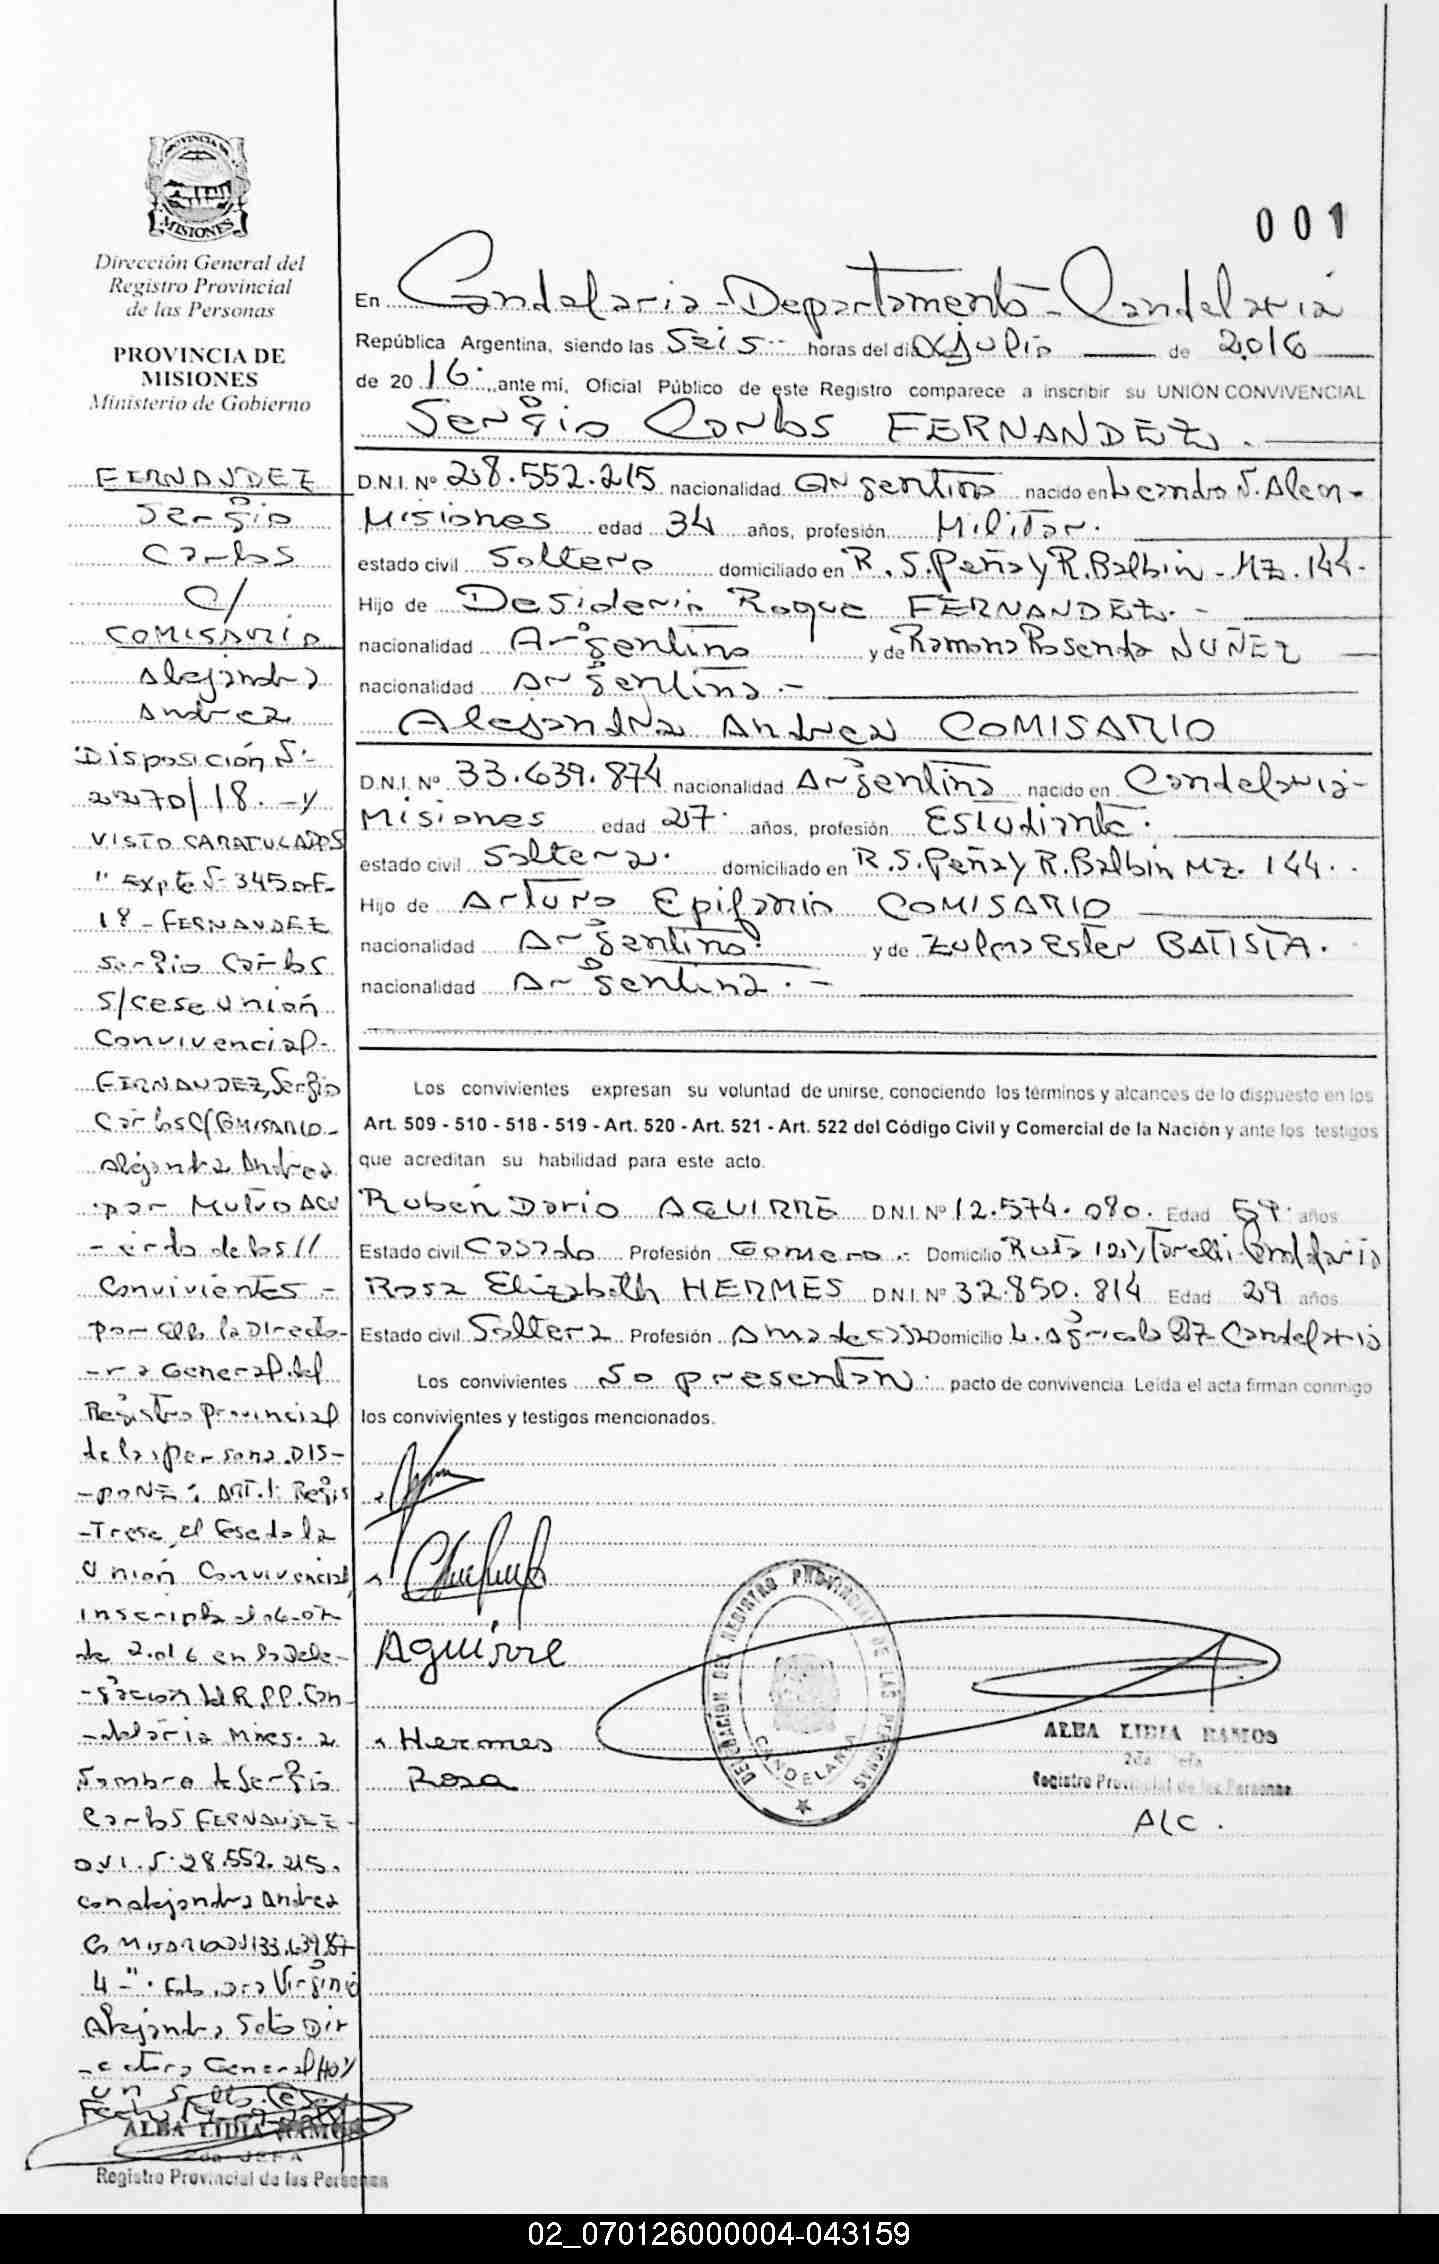 PROVINCIA DE
MISIONES
Dirección General del
Registro Provincial
de las Personas
PROVINCIA DE
MISIONES
Ministerio de Gobierno
FERNANDEZ
Sergio
Carlos
C/
COMISARIO
Alejandra
Andrea
Disposición Nº
2270/18. - y
VISTO CARATULADOS
" Expte Nº 345
18 - FERNANDEZ
Sergio Carlos
S/cese unión
Convivencial-
FERNANDEZ, Sergio
Carlos C/COMISARIO-
Alejandra Andrea
por Mutuo Acu
-erdo de los //
Convivientes -
por ello la Directo-
-ra General del
Registro Provincial
de las persona DIS-
-PONE: ART. 1: Regis
-Trese, el Cese de la
Unión Convivencial,
inscripta el 06-07
de 2.016 en la Dele-
-gación del R.P.P. Can-
-delaria Mnes. a
Nombre de Sergio
Carlos FERNANDEZ
D.N.I. Nº 28.552.215.
con Alejandra Andrea
COMISARIO DNI 33.639.87
4 -". Virginia
Alejandra Soto Dir
-ectora General Hay
un Sello.
Fecha
ALBA LIDIA RAMOS
2da JEFA
Registro Provincial de las Personas
001
En Candelaria - Departamento - Candelaria
República Argentina, siendo las Seis horas del día julio de 2.016
de 20 16. ante mí, Oficial Público de este Registro comparece a inscribir su UNIÓN CONVIVENCIAL
Sergio Carlos FERNANDEZ.
D.N.I. Nº 28.552.215 nacionalidad Argentino nacido en Leandro N. Alem -
Misiones edad 34 años, profesión Militar.
estado civil Soltero domiciliado en R. S. Peña y R. Balbin - Mz. 144-
Hijo de Desiderio Roque FERNANDEZ. -
nacionalidad Argentino y de Ramona Rosenda NUÑEZ
nacionalidad Argentina. -
Alejandra Andrea COMISARIO
D.N.I. Nº 33.639.874 nacionalidad Argentina nacido en Candelaria-
Misiones edad 27. años, profesión Estudiante.
estado civil Soltera. domiciliado en R. S. Peña y R. Balbin Mz. 144.
Hijo de Arturo Epifanio COMISARIO
nacionalidad Argentino. y de Zulma Ester BATISTA.
nacionalidad Argentina. -
Los convivientes expresan su voluntad de unirse, conociendo los términos y alcances de lo dispuesto en los
Art. 509 - 510 - 518 - 519 - Art. 520 - Art. 521 - Art. 522 del Código Civil y Comercial de la Nación y ante los testigos
que acreditan su habilidad para este acto.
Rubén Dario AGUIRRE D.N.I. Nº 12.574.080. Edad 59. años
Estado civil Casado Profesión Gomero. - Domicilio Ruta 12 y Torelli Candelaria
Rosa Elizabeth HERMES D.N.I. Nº 32.850.814 Edad 29 años
Estado civil Soltera Profesión Ama de casa Domicilio L. Agricola 27 - Candelaria
Los convivientes No presentan. pacto de convivencia. Leída el acta firman conmigo
los convivientes y testigos mencionados.
Aguirre
Hermes
Rosa
DELEGACION DEL REGISTRO PROVINCIAL DE LAS PERSONAS
CANDELARIA
ALBA LIDIA RAMOS
2da Jefa
Registro Provincial de las Personas
A/C.
02_070126000004-043159